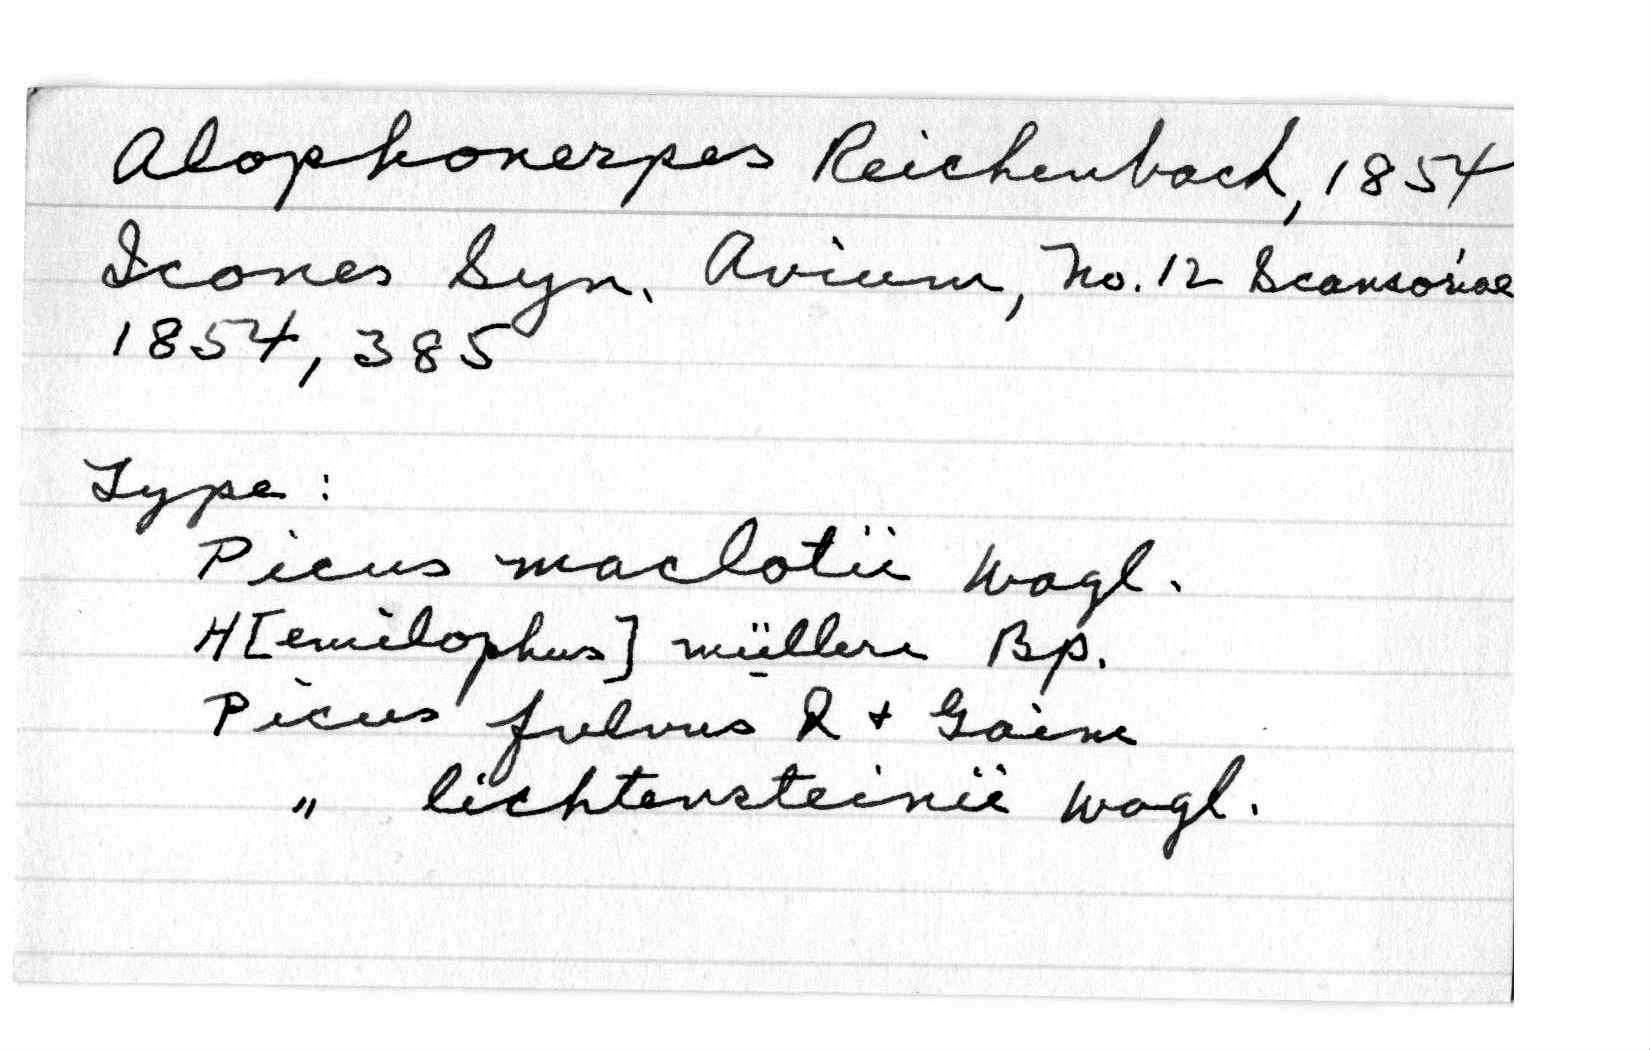 Alophonerpes Reichenbach, 1854
Icones Syn. Avium, No. 12 Scansoriae
1854, 385
Type:
Picus maclotii Wagl.
H[emilophus] mülleri Bp.
Picus fulvus Q + Gaim
" lichtensteinii Wagl.